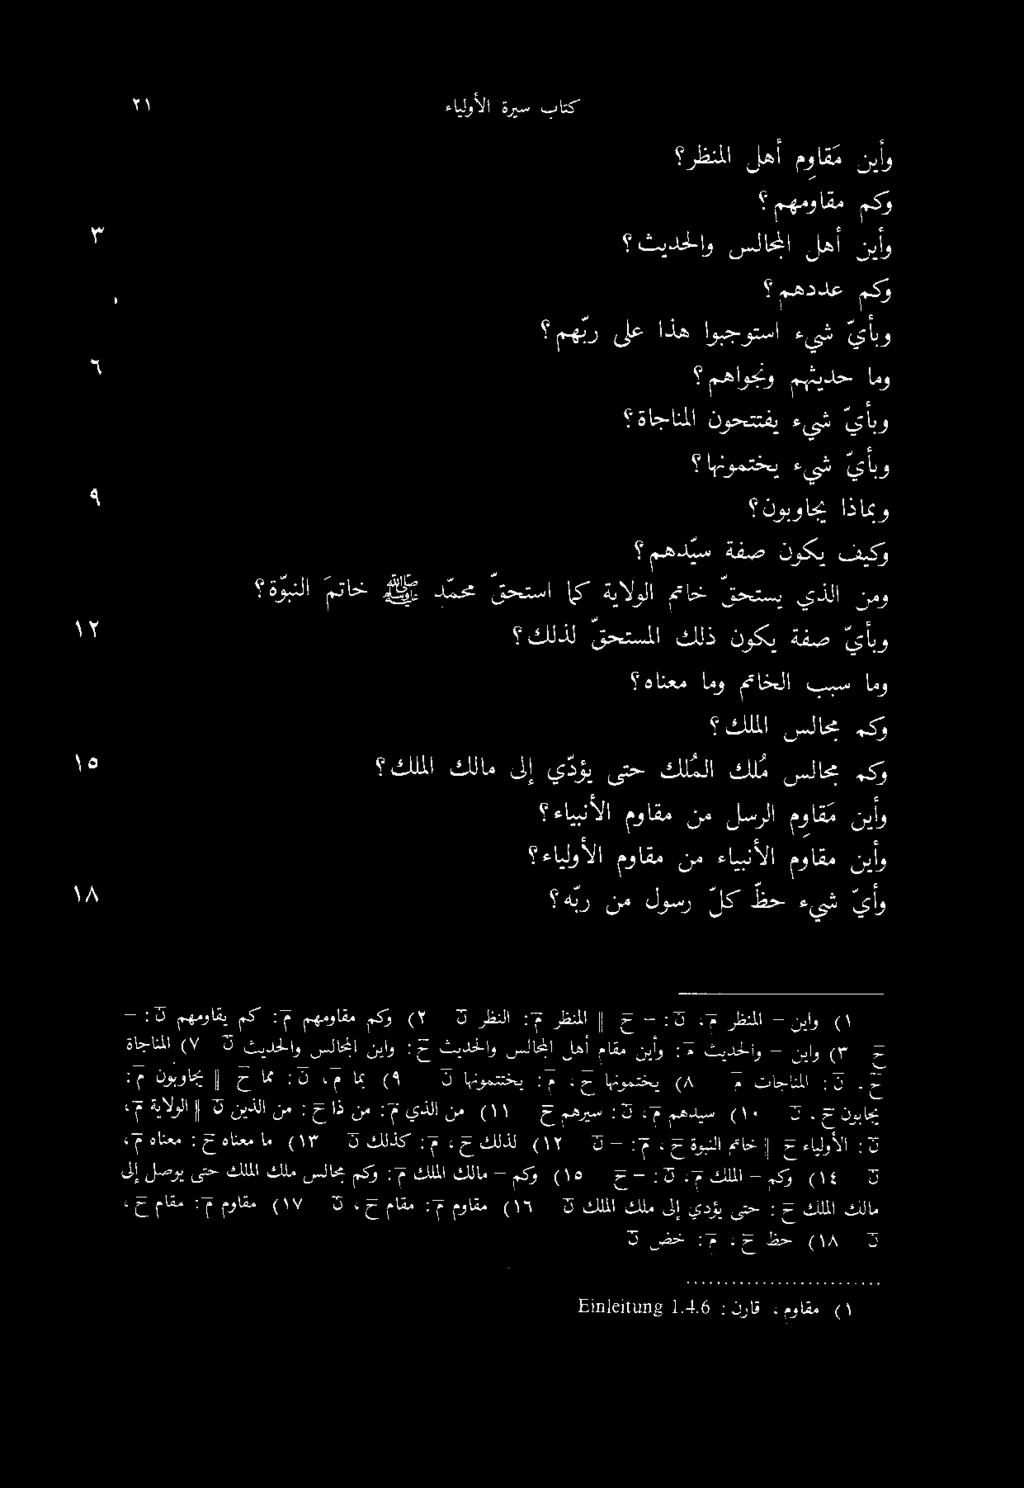 كتاب سيرة الأولياء ٢١
وأين مَقاوِم أهل المنظر؟
وكم مقاومهم؟
وأين أهل المجالس والحديث؟ ٣
وكم عددهم؟
وبأيّ شيء استوجبوا هذا على ربّهم؟
وما حديثهم ونجواهم؟ ٦
وبأيّ شيء يفتتحون المناجاة؟
وبأيّ شيء يختمونها؟
وبماذا يجاوبون؟ ٩
وكيف يكون صفة سيّدهم؟
ومن الذي يستحقّ خاتم الولاية كما استحقّ محمّد ﷺ خاتمَ النبوّة؟
وبأيّ صفة يكون ذلك المستحقّ لذلك؟ ١٢
وما سبب الخاتم وما معناه؟
وكم مجالس الملك؟
وكم مجالس مُلك المُلك حتى يؤدّي إلى مالك الملك؟ ١٥
وأين مَقاوِم الرسل من مقاوم الأنبياء؟
وأين مقاوم الأنبياء من مقاوم الأولياء؟
وأيّ شيء حظّ كلّ رسول من ربّه؟ ١٨
١) واين – المنظر م، ن: – ح || المنظر م: النظر ن ٢) وكم مقاومهم م: كم يقاومهم ن: –
ح ٣) واين – والحديث م: وأين مقام أهل المجالس والحديث ح: واين المجالس والحديث ن ٧) المناجاة
ح، ن: المناجات م ٨) يختمونها ح، م: يختتمونها ن ٩) بما م، ن: مما ح || يجاوبون م:
يجابون ح، ن ١٠) سيدهم م، ن: سيرهم ح ١١) من الذي م: من ذا ح: من الذين ن || الولاية م،
ن: الأولياء ح || خاتم النبوة ح، م: – ن ١٢) لذلك ح، م: كذلك ن ١٣) ما معناه ح: معناه م،
ن ١٤) وكم – الملك م، ن: – ح ١٥) وكم – مالك الملك م: وكم مجالس ملك الملك حتى يوصل إلى
مالك الملك ح: حتى يؤدي إلى ملك الملك ن ١٦) مقاوم م: مقام ح، ن ١٧) مقاوم م: مقام ح،
ن ١٨) حظ ح، م: خض ن
١) مقاوم، قارن: Einleitung 1.4.6